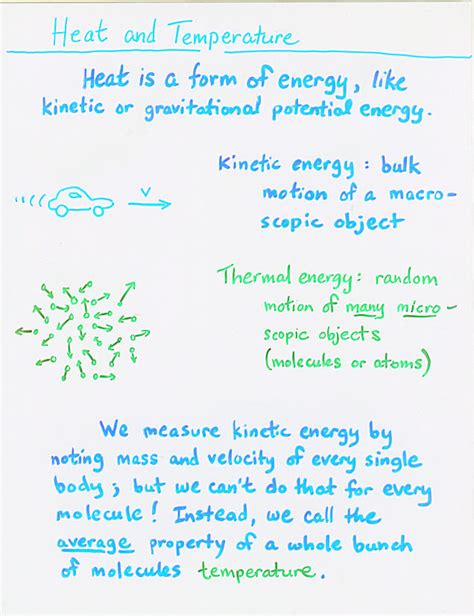 Heat and Temperature
Heat is a form of energy, like
kinetic or gravitational potential energy.
Kinetic energy : bulk
motion of a macro-
scopic object
v
Thermal energy: random
motion of many micro-
scopic objects
(molecules or atoms)
We measure kinetic energy by
noting mass and velocity of every single
body; but we can't do that for every
molecule! Instead, we call the
average property of a whole bunch
of molecules temperature.